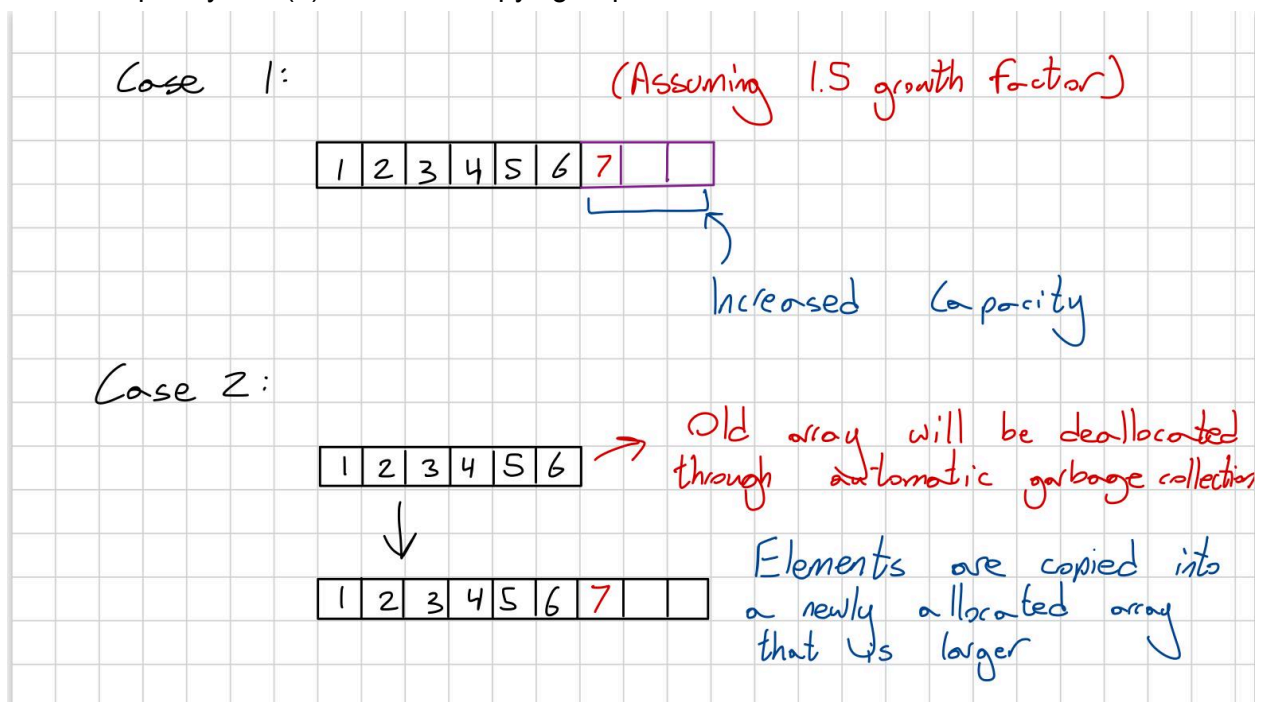 Case 1:
(Assuming 1.5 growth factor)
1 2 3 4 5 6 7
Increased Capacity
Case 2:
1 2 3 4 5 6
Old array will be deallocated
through automatic garbage collection
1 2 3 4 5 6 7
Elements are copied into
a newly allocated array
that is larger